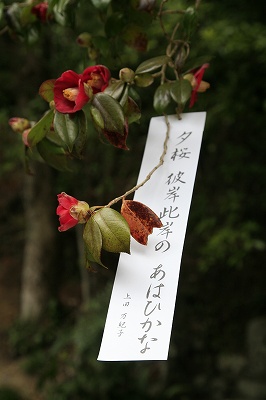 夕桜 彼岸此岸の あはひかな
上田 万紀子